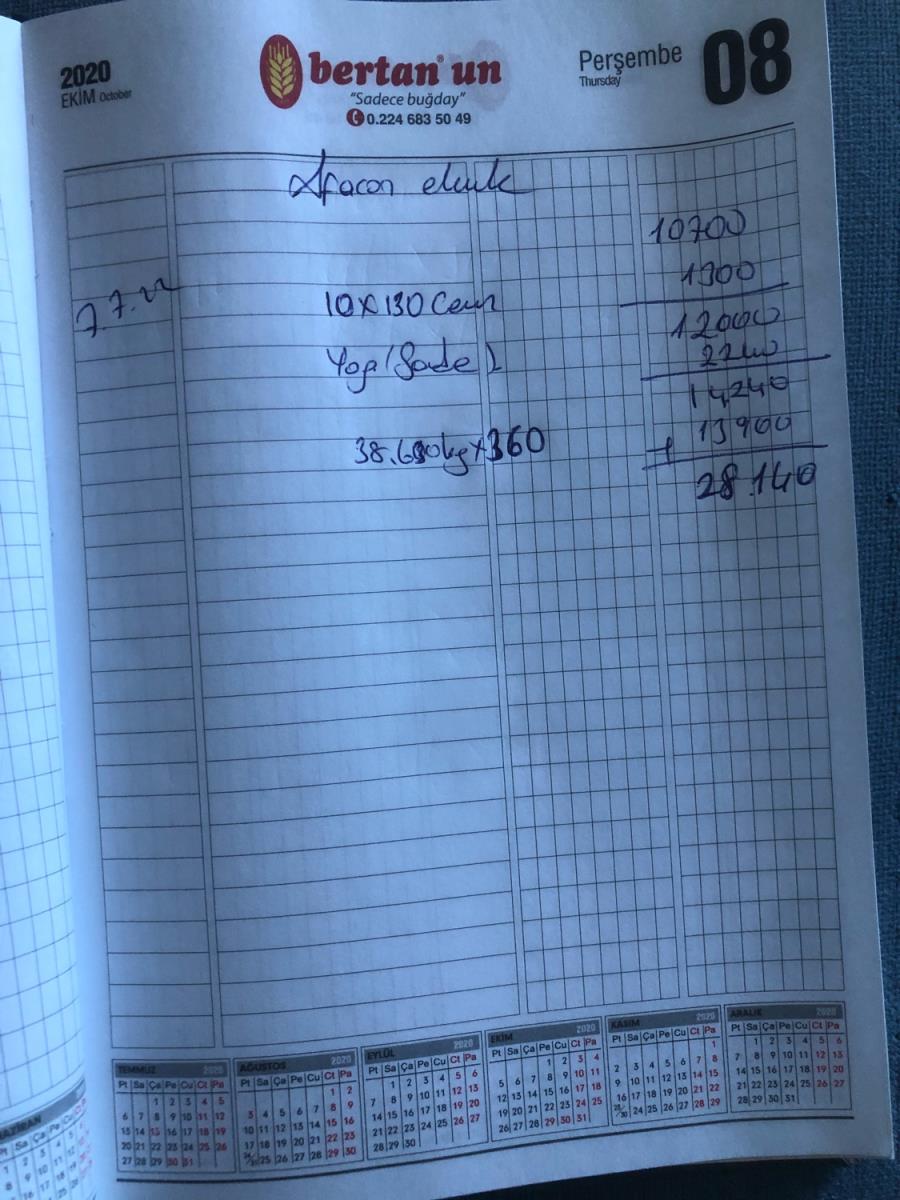 2020
EKİM October
bertan un
"Sadece buğday"
0.224 683 50 49
Perşembe
Thursday
08
10700
1300
7.7.22
10x130
12000
2240
14240
13900
38.690kg x 360
+
28.140
HAZİRAN
TEMMUZ 2020
Pt Sa Ça Pe Cu Ct Pa
1 2 3 4 5
6 7 8 9 10 11 12
13 14 15 16 17 18 19
20 21 22 23 24 25 26
27 28 29 30 31
AĞUSTOS 2020
Pt Sa Ça Pe Cu Ct Pa
1 2
3 4 5 6 7 8 9
10 11 12 13 14 15 16
17 18 19 20 21 22 23
24/31 25 26 27 28 29 30
EYLÜL 2020
Pt Sa Ça Pe Cu Ct Pa
1 2 3 4 5 6
7 8 9 10 11 12 13
14 15 16 17 18 19 20
21 22 23 24 25 26 27
28 29 30
EKİM 2020
Pt Sa Ça Pe Cu Ct Pa
1 2 3 4
5 6 7 8 9 10 11
12 13 14 15 16 17 18
19 20 21 22 23 24 25
26 27 28 29 30 31
KASIM 2020
Pt Sa Ça Pe Cu Ct Pa
1
2 3 4 5 6 7 8
9 10 11 12 13 14 15
16 17 18 19 20 21 22
23/30 24 25 26 27 28 29
ARALIK 2020
Pt Sa Ça Pe Cu Ct Pa
1 2 3 4 5 6
7 8 9 10 11 12 13
14 15 16 17 18 19 20
21 22 23 24 25 26 27
28 29 30 31